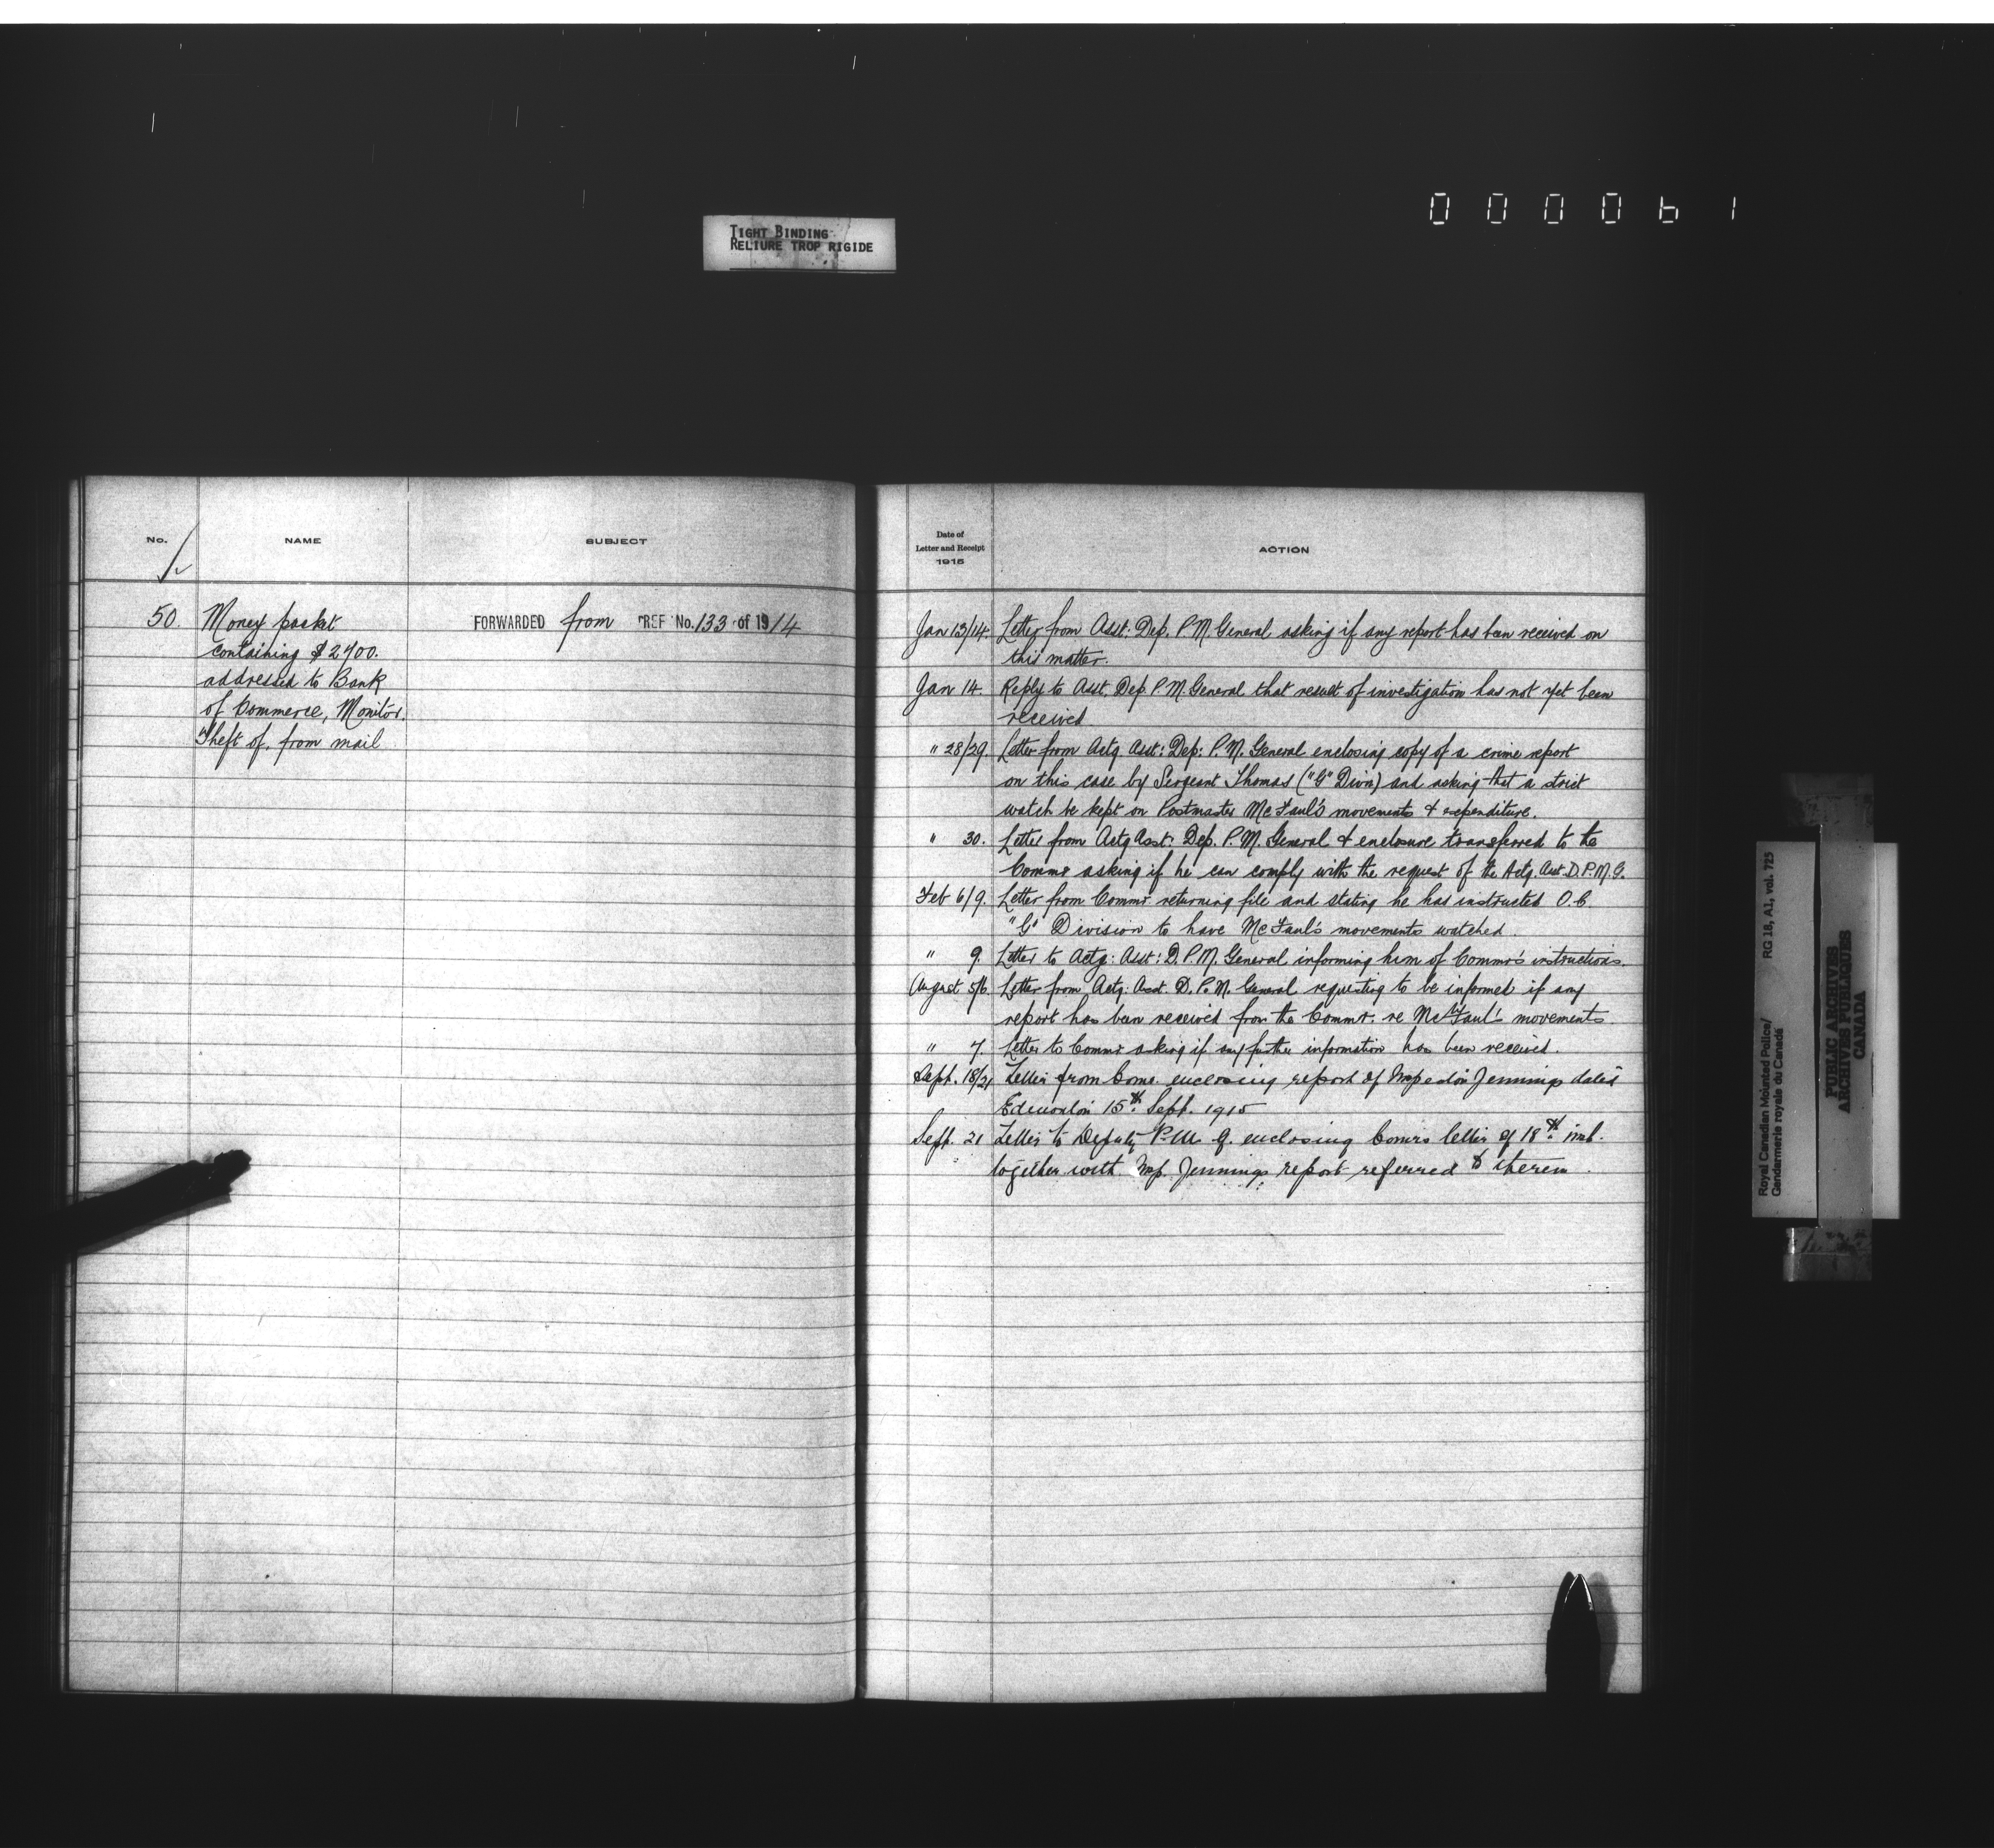 000061
TIGHT BINDING
RELIURE TROP RIGIDE
No.
NAME
SUBJECT
50.
Money packet
containing $2400.
addressed to Bank
of Commerce, Monitor.
Theft of, from mail
FORWARDED from REF No. 133 of 1914
Date of
Letter and Receipt
1915
ACTION
Jan 13/14. Letter from Asst: Dep. P.M. General asking if any report has been received on
this matter.
Jan 14. Reply to Asst. Dep. P.M. General that result of investigation has not yet been
received
" 28/29. Letter from Actg Asst: Dep: P.M. General enclosing copy of a crime report
on this case by Sergeant Thomas ("G" Divn) and asking that a strict
watch be kept on Postmaster McFaul's movements & expenditure.
" 30. Letter from Actg Asst: Dep. P.M. General & enclosure transferred to the
Commr asking if he can comply with the request of the Actg. Asst. D.P.M.G.
Feb 6/9. Letter from Commr. returning file and stating he has instructed O.C.
"G" Division to have McFaul's movements watched.
" 9. Letter to Actg: Asst: D.P.M. General informing him of Commr's instructions.
August 5/6. Letter from Actg: Asst. D.P.M. General requesting to be informed if any
report has been received from the Commr. re McFaul's movements.
" 7. Letter to Commr asking if any further information has been received.
Sept. 18/21 Letter from Comr. enclosing report of Inspector Jennings dated
Edmonton 15th Sept. 1915
Sept. 21 Letter to Deputy P.M.G. enclosing Comrs letter of 18th inst.
together with Insp. Jennings report referred to therein.
Royal Canadian Mounted Police/
Gendarmerie royale du Canada
RG 18, A1, vol. 725
PUBLIC ARCHIVES
ARCHIVES PUBLIQUES
CANADA